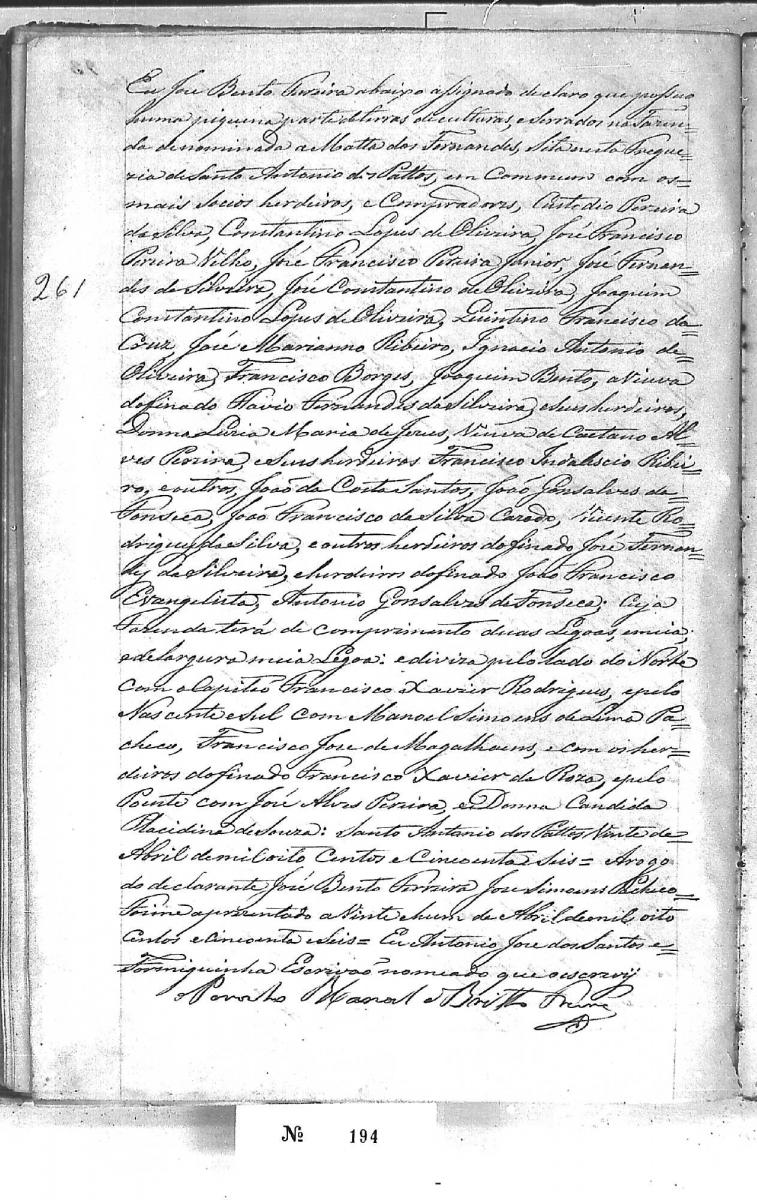 Eu Jose Bento Ferreira abaixo assignado declaro que possuo
huma piquena parte de terras de culturas, e Serrados na Fazen=
da denominada a Matta dos Fernandes, Sita nesta Fregue=
zia de Santo Antonio dos Pattos, em Commum com os=
mais Socios herdeiros, e Compradores, Custodio Pereira
da Silva, Constantino Lopes de Oliveira, José Francisco
Pereira Velho, José Francisco Pereira Junior, José Fernan=
261
des da Silveira, José Constantino de Oliveira, Joaquim
Constantino Lopes de Oliveira, Quintino Francisco da=
Cruz, José Marianno Ribeiro, Ignacio Antonio de=
Oliveira, Francisco Borges, Joaquim Bento, a Viuva
do finado Flavio Fernandes da Silveira, e seus herdeiros,
Donna Luzia Maria de Jesus, Viuva de Caetano Al=
ves Pereira, e Seus herdeiros Francisco Indalescio Ribei=
ro, e outros, João da Costa Santos, João Gonsalves da=
Fonseca, João Francisco da Silva Vicente Ro=
drigues da Silva, e outros herdeiros do finado José Fernan=
des da Silveira, e herdeiros do finado João Francisco
Evangelista, Antonio Gonsalves de Fonseca; Cuja
Fazenda terá de comprimento duas Legoas, e meia,
e de largura meia Legoa: e diviza pelo lado do Norte
com o Capitão Francisco Xavier Rodrigues, e pelo
Nascente e Sul com Manoel Simoens de Lima Pa=
checo, Francisco Jose de Magalhaens, e com os her=
deiros do finado Francisco Xavier da Roza, e pelo
Poente com José Alves Pereira, e Donna Candida
Placidina de Souza: Santo Antonio dos Pattos Vinte de=
Abril de mil oito Centos e Cincoenta e Seis= Arogo
do declarante José Bento Ferreira Jose Simoens Pacheco=
Foime apresentado a Vinte e hum de Abril de mil oito
Centos e cincoenta e Seis= Eu Antonio Jose dos Santos e=
Formiguinha Escrivaõ nomeado que o escrevy
Manoel Britto Freire
Nº 194